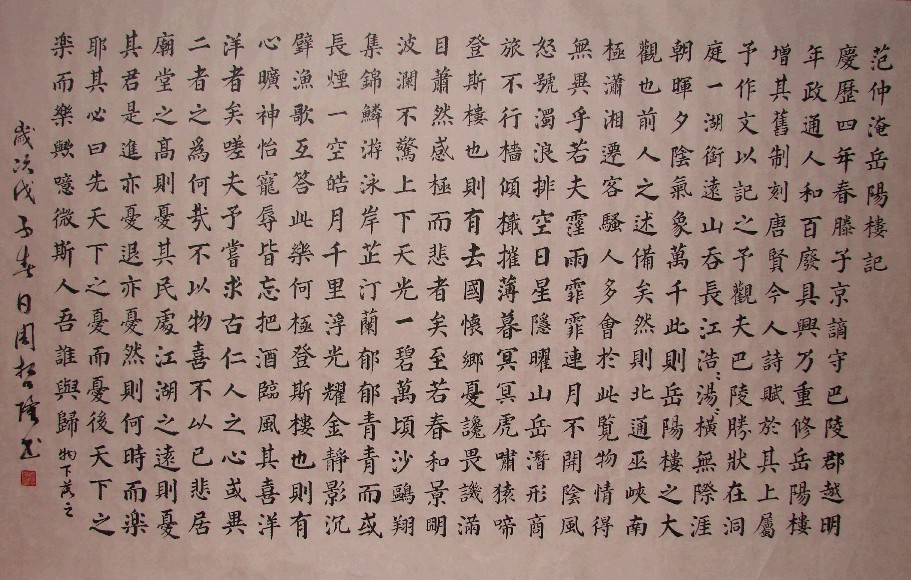 范仲淹岳陽樓記
慶歷四年春滕子京謫守巴陵郡越明
年政通人和百廢具興乃重修岳陽樓
增其舊制刻唐賢今人詩賦於其上屬
予作文以記之予觀夫巴陵勝狀在洞
庭一湖銜遠山吞長江浩〻湯〻橫無際涯
朝暉夕陰氣象萬千此則岳陽樓之大
觀也前人之述備矣然則北通巫峽南
極瀟湘遷客騷人多會於此覽物情得
無異乎若夫霪雨霏霏連月不開陰風
怒號濁浪排空日星隱曜山岳潛形商
旅不行檣傾檝摧薄暮冥冥虎嘯猿啼
登斯樓也則有去國懷鄉憂讒畏譏滿
目蕭然感極而悲者矣至若春和景明
波瀾不驚上下天光一碧萬頃沙鷗翔
集錦鱗游泳岸芷汀蘭郁郁青青而或
長煙一空皓月千里浮光耀金靜影沉
璧漁歌互答此樂何極登斯樓也則有
心曠神怡寵辱皆忘把酒臨風其喜洋
洋者矣嗟夫予嘗求古仁人之心或異
二者之為何哉不以物喜不以己悲居
廟堂之高則憂其民處江湖之遠則憂
其君是進亦憂退亦憂然則何時而樂
耶其必曰先天下之憂而憂後天下之
樂而樂歟噫微斯人吾誰與歸 物下落之
歲次戊子春日周哲隆书